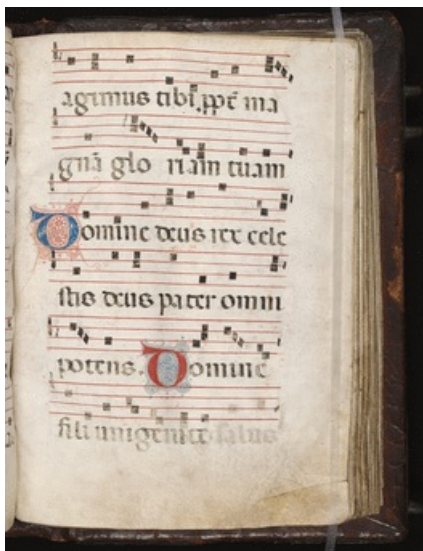 agimus tibi ppt ma
gnā glo riam tuam
Domine deus rex cele
stis deus pater omni
potens. Domine
fili unigenite